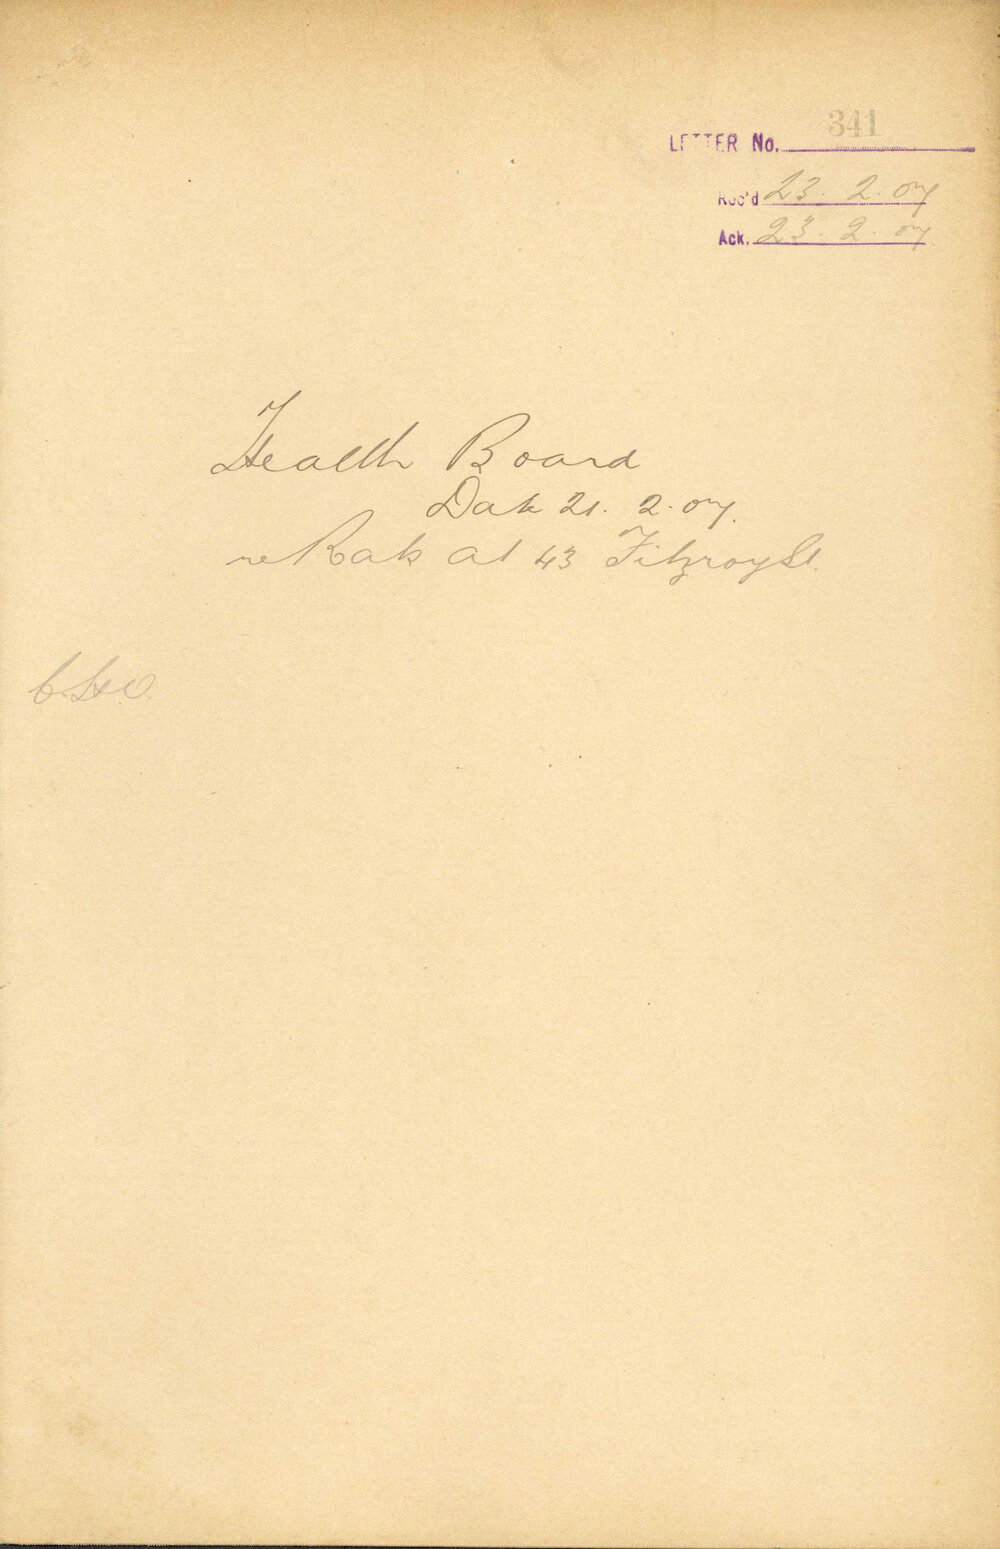 LETTER No. 341
Rec'd 23. 2. 07
Ack. 23. 2. 07
Health Board
Date 21. 2. 07.
re Rats at 43 Fitzroy St.
C.H.O.